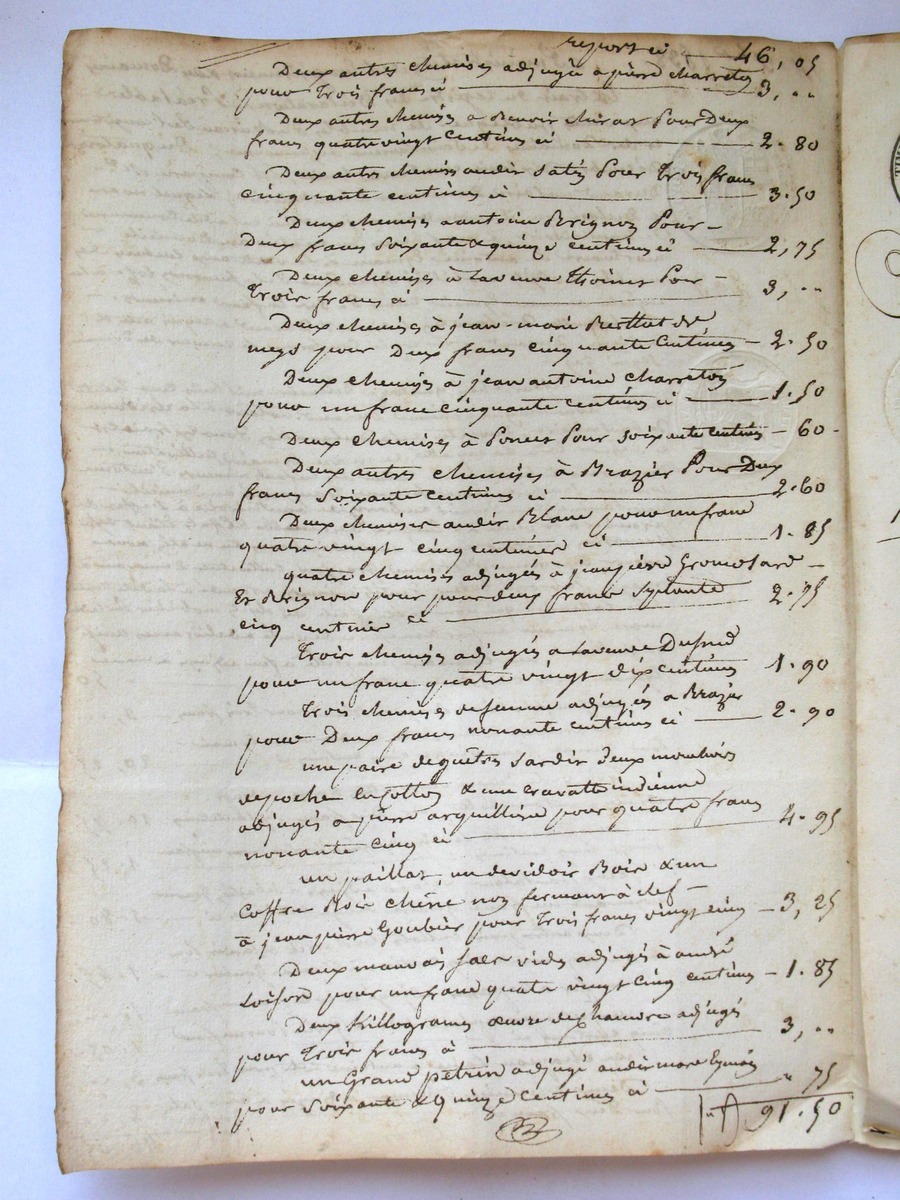 report ci 46,05
Deux autres chemises adjugée a pierre charreton
pour Trois francs ci 3,..
Deux autres chemises a Benoir chirat Pour Deux
francs quatre vingt Centimes ci 2.80
Deux autres chemises audit satin Pour Trois francs
cinquante centimes ci 3.50
Deux chemises a antoine Brignon Pour
Deux francs soixante & quinze centimes ci 2,75
Deux chemises à Laveuve Thoinet Pour
Trois francs ci 3,..
Deux chemises à jean-marie Berthet de
meys pour Deux francs cinquante Centimes 2.50
Deux chemises à jean antoine charreton
pour un franc cinquante centimes ci 1.50
Deux chemises à Poncet Pour soixante centimes 60
Deux autres chemises à Brazier Pour Deux
francs soixante centimes ci 2.60
Deux chemises audit Blanc pour un franc
quatre vingt cinq centimes ci 1.85
quatre chemises adjugés à jean pierre Gromolard
Et Brignon pour pour deux francs septante
cinq centimes ci 2.75
Trois chemises adjugés a Laveuve Dufud
pour un franc quatre vingt dix centimes 1.90
Trois chemises de femme adjugés a Brazier
pour Deux francs nonante centimes ci 2.90
une paire deguêtres sardir deux mouchoirs
depoche en Cotton & une cravatte indienne
adjugés a pierre arquillière pour quatre francs
nonante cinq ci 4.95
un paillat, un devidoir Bois & un
Coffre Bois chêne non fermant à clef
à jean pierre Goubier pour Trois francs vingt cinq 3,25
Deux mauvais sacs vides adjugés à andré
Loisord pour un franc quatre vingt Cinq centimes 1.85
Deux killogrames œuvre de chanvre adjugés
pour Trois francs à 3,..
un Grand pétrin adjugé audit marc Eymin
pour soixante & Quinze Centimes ci " 75
91.50